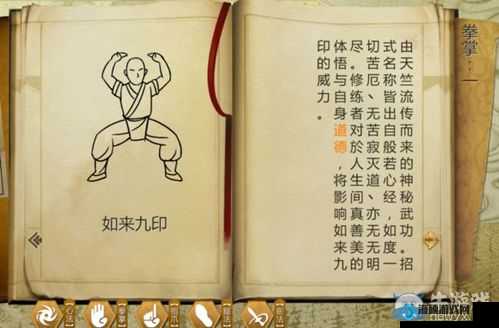 拳掌：一
由天竺流传而来的神秘武功。招
式名称皆出自般若心经，如度一
切苦厄、无苦寂灭道、亦无无明
尽。修练者对於人生间真善美的
体悟与自身道德，将影响如来九
印的威力。
如来九印
拳掌